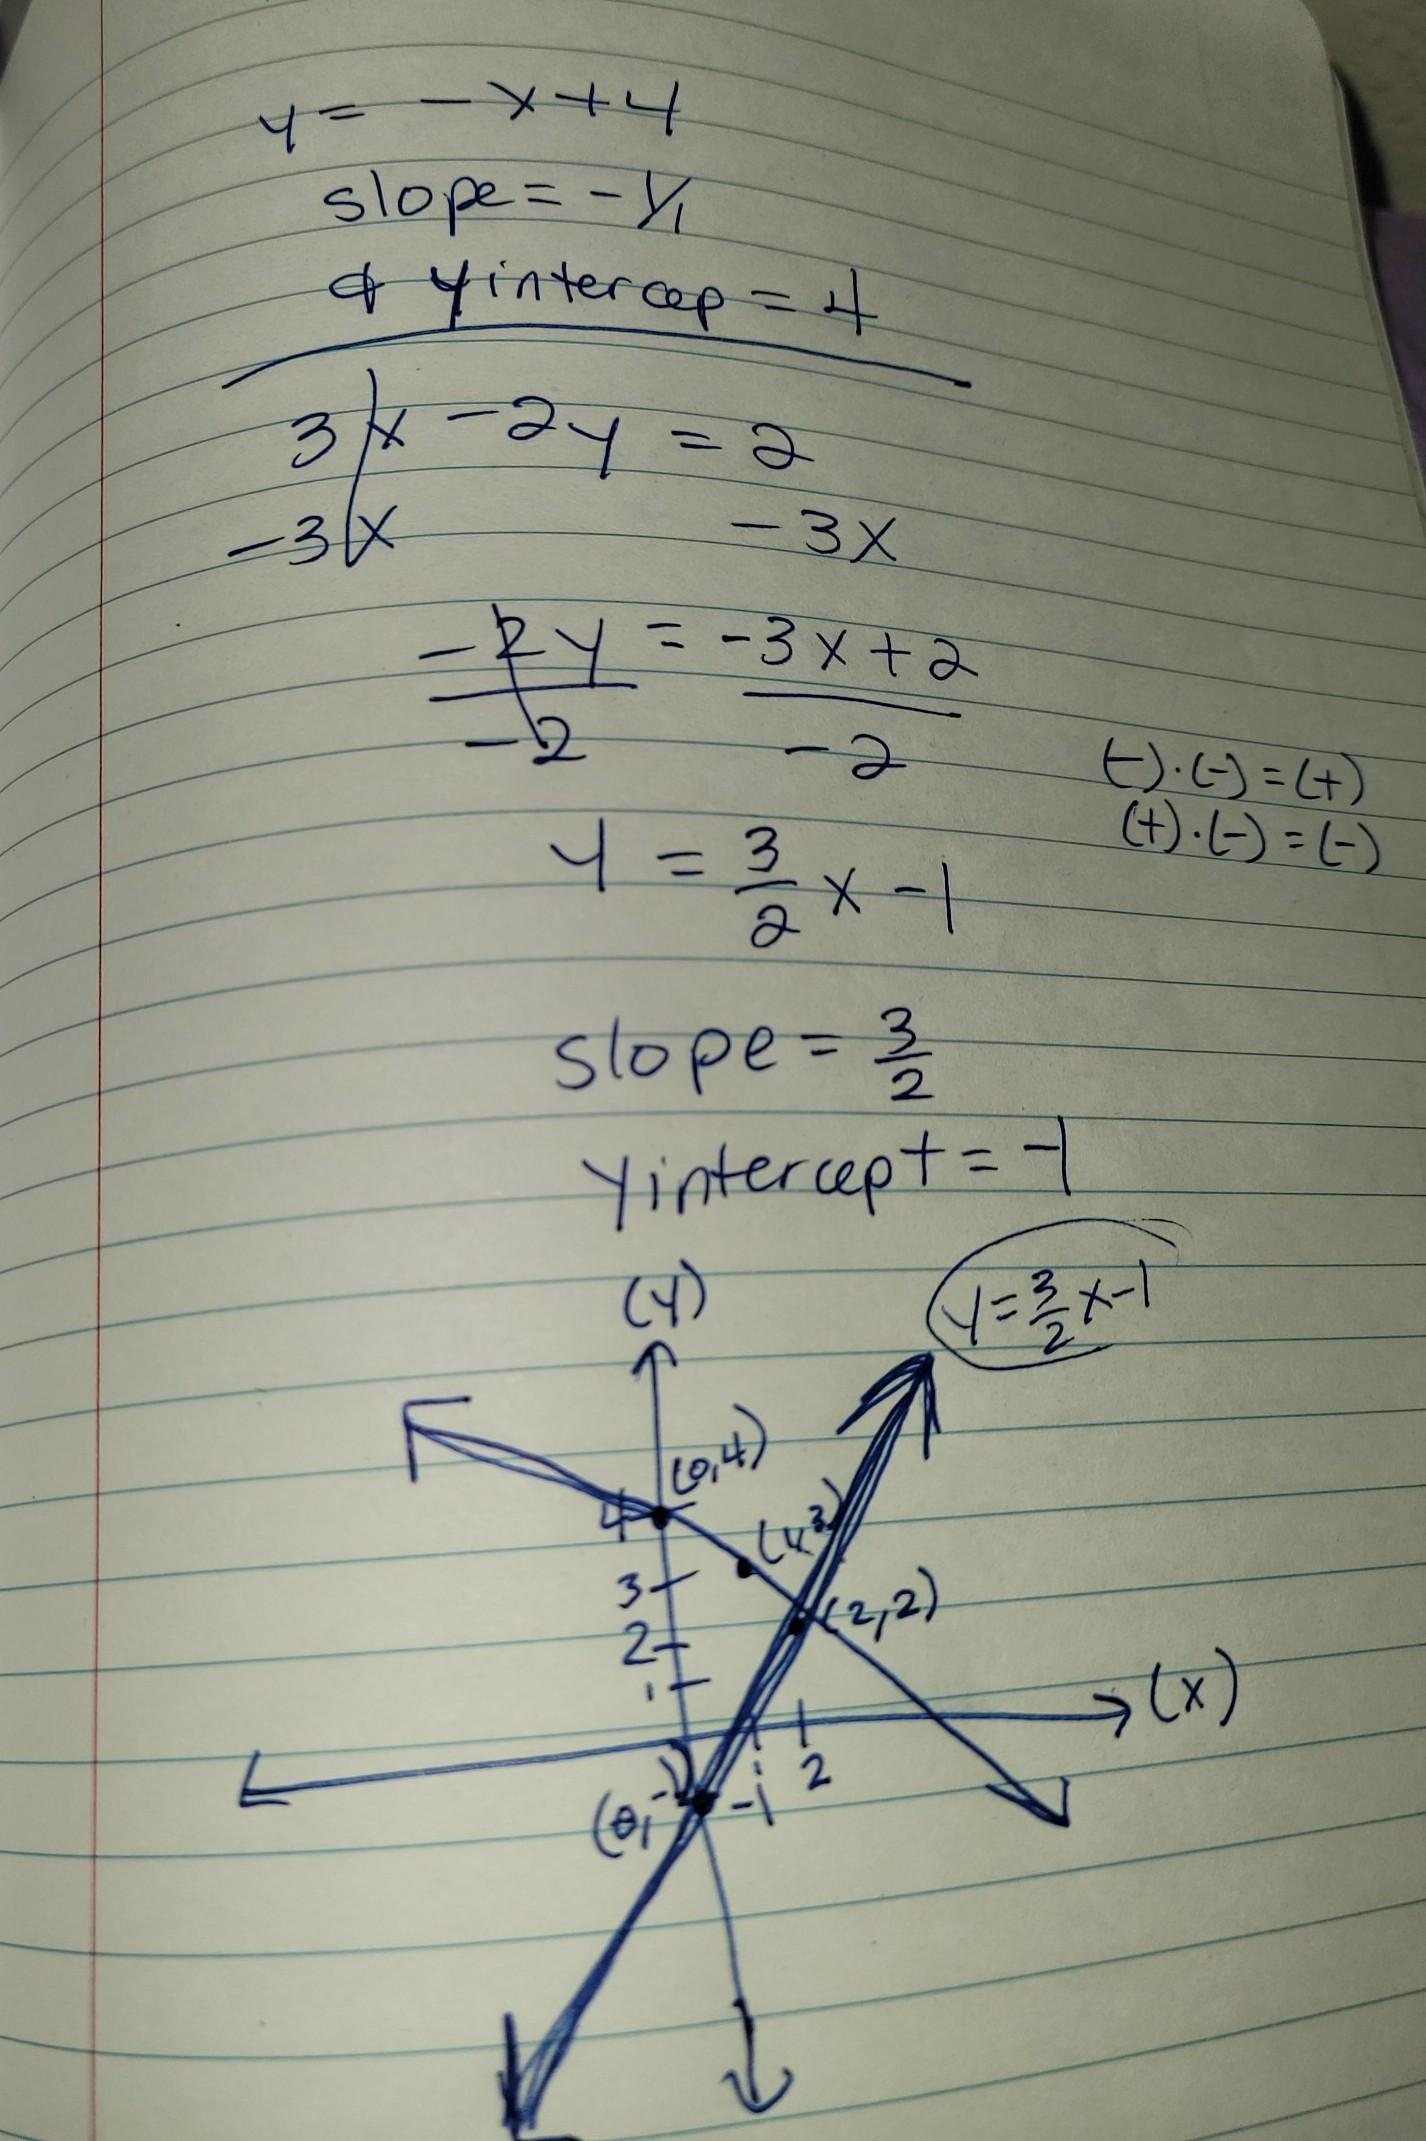 y = -x+4
slope = -1/1
& yintercep = 4
3x - 2y = 2
-3x -3x
-2y = -3x+2
-2 -2
(-)·(-) = (+)
(+)·(-) = (-)
y = 3/2 x - 1
slope = 3/2
yintercept = -1
(y)
y = 3/2 x - 1
(0,4)
4
3
(2,2)
2
1
(x)
1 2
-1